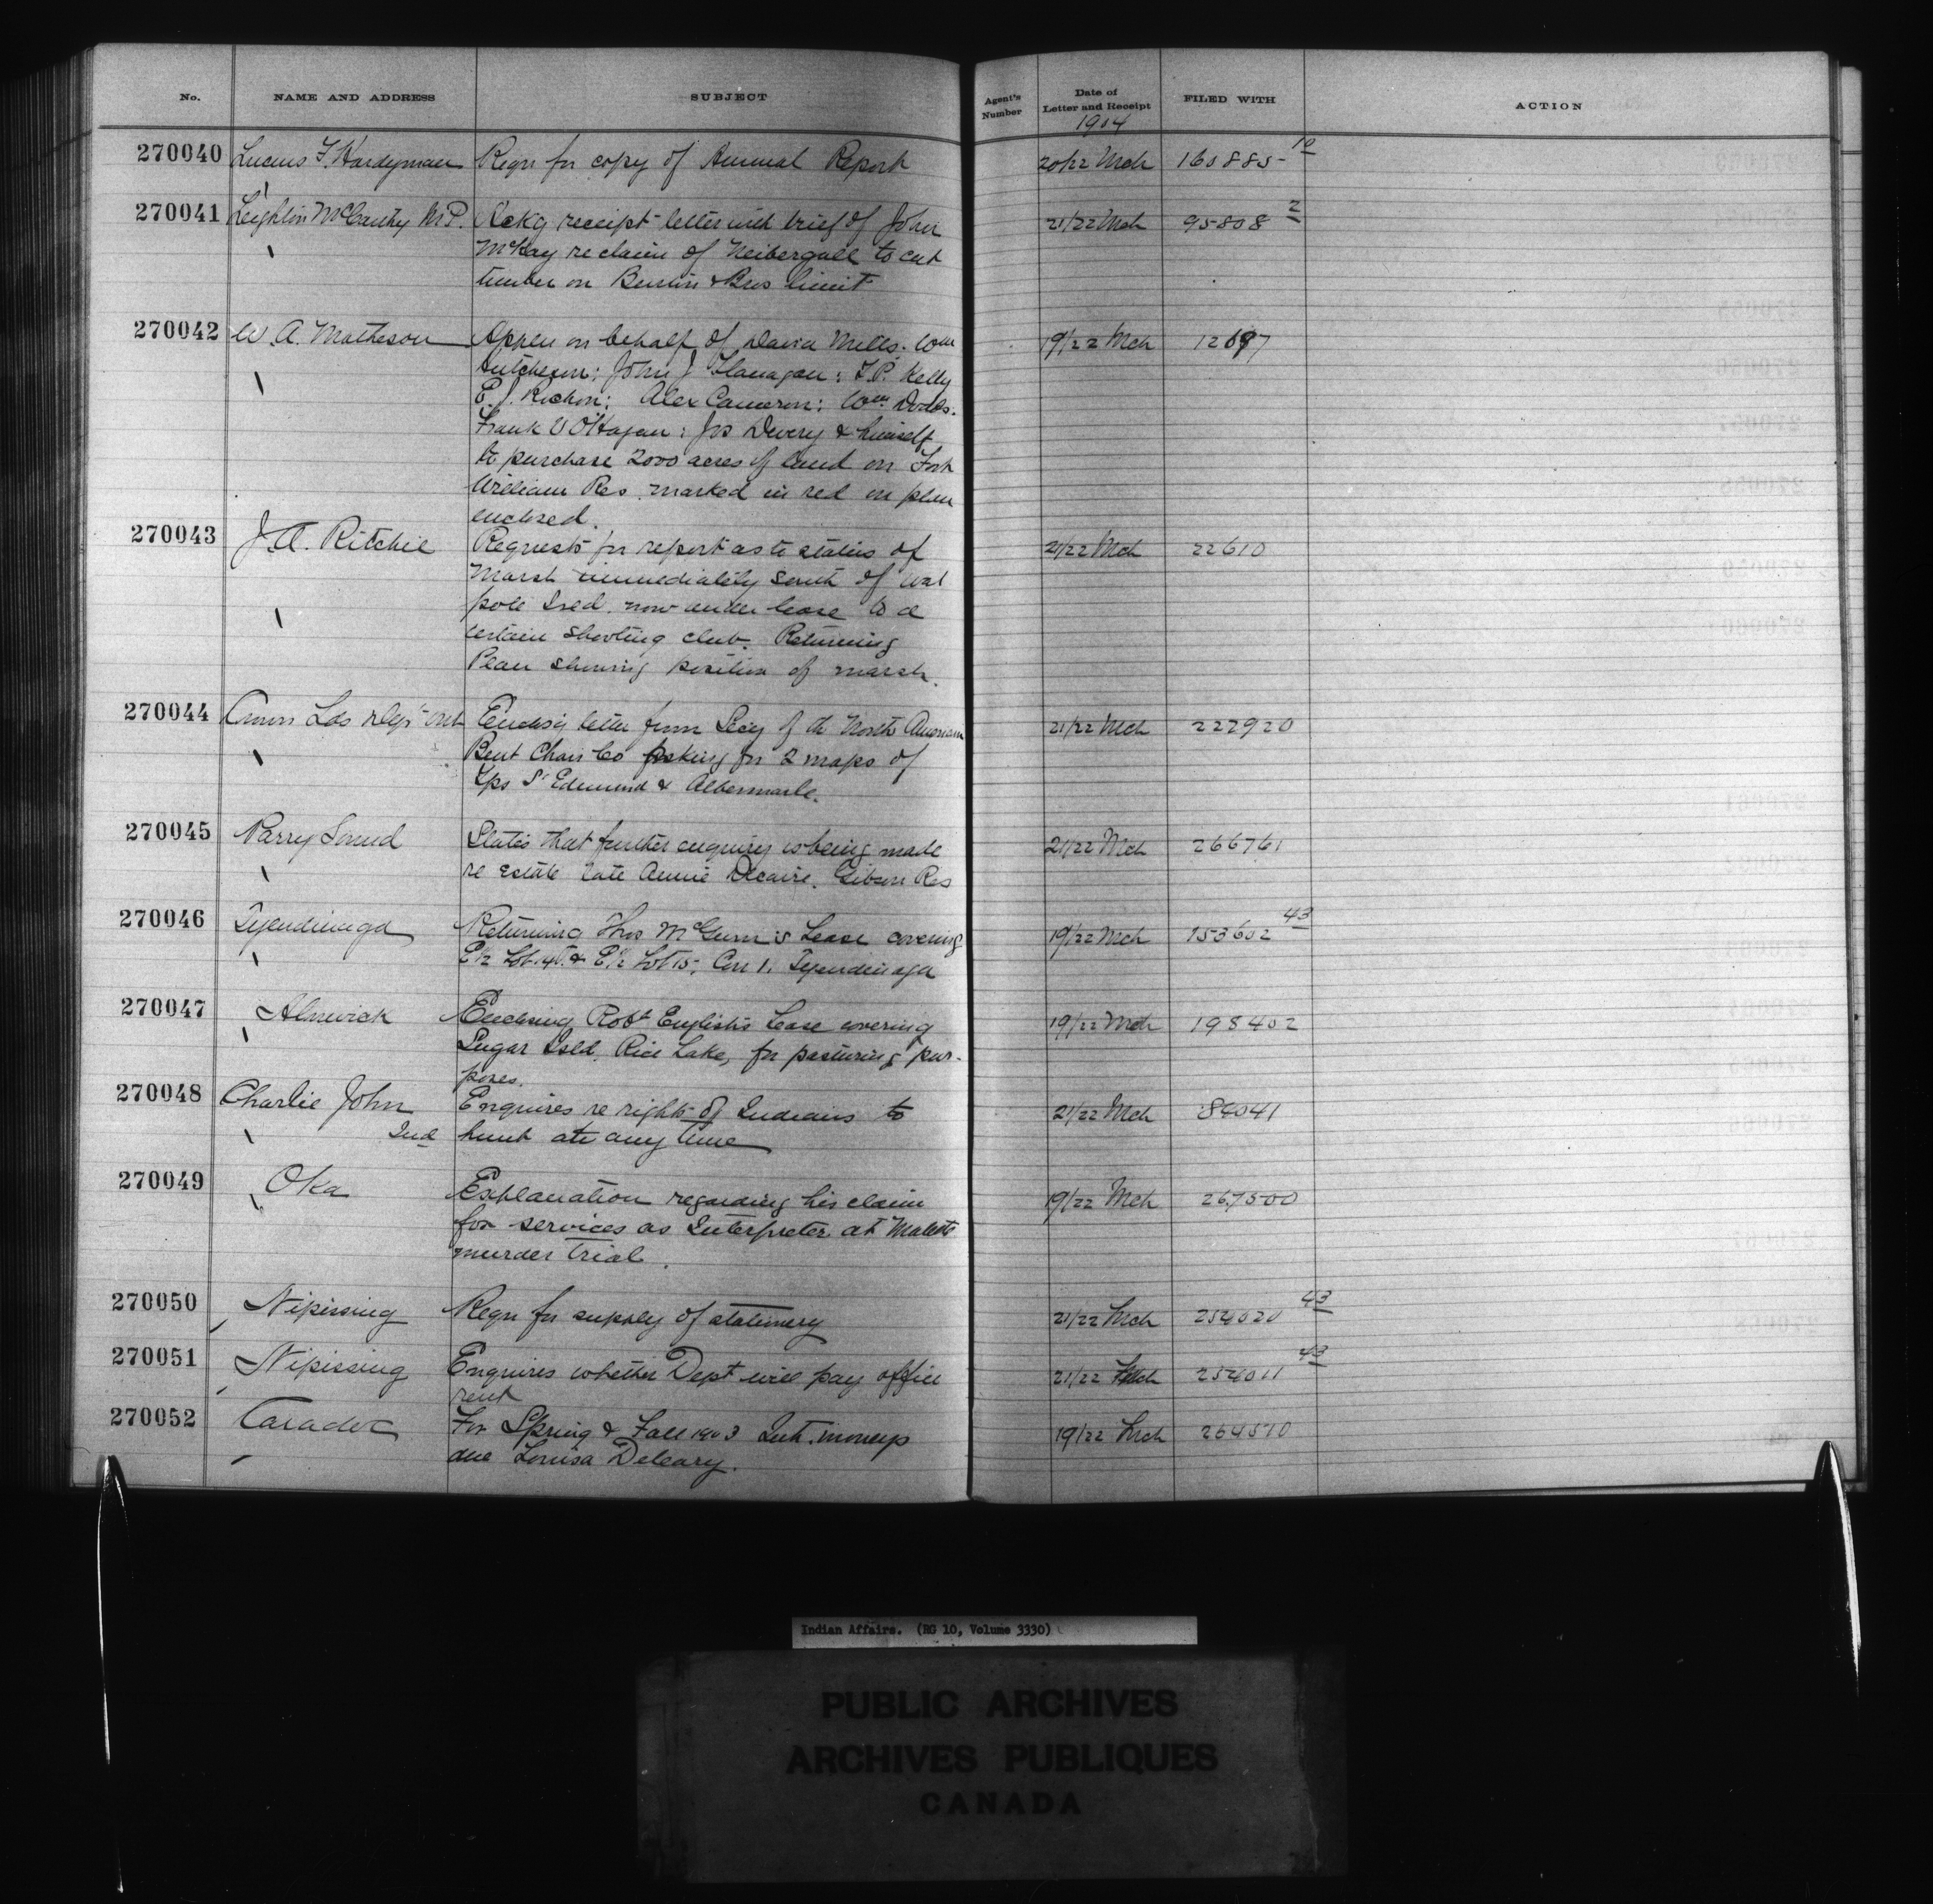 No. NAME AND ADDRESS SUBJECT Agent's Number Date of Letter and Receipt FILED WITH ACTION
1904
270040 Lucius F. Hardyman Requ for copy of Annual Report 20/22 Mch 160885-10
270041 Leighton McCarthy M.P. Ackg receipt letter with brief of John 21/22 Mch 95808 2
McKay re claim of Neibergall to cut
timber on & Bros limit
270042 W. A. Matheson Applen on behalf of David Mills: Wm 19/22 Mch 12697
Hutcheson: John J Flanagan: T.P. Kelly
E.J. Rochon: Alex Cameron: Wm Dodds.
Frank U O'Hagan: Jos Devery & himself
to purchase 2000 acres of land on Fort
William Res. marked in red on plan
enclosed.
270043 J. A. Ritchie Requests for report as to status of 21/22 Mch 22610
Marsh immediately south of Wal
pole Isld. now under lease to a
certain shooting club. Returning
Plan showing position of marsh.
270044 Crown Lds Dept Ont Enclosg letter from Secy of the North American 21/22 Mch 222920
Bent Chair Co asking for 2 maps of
Tps St Edmund & Albermarle.
270045 Parry Sound States that further enquiry is being made 21/22 Mch 266761
re Estate late Annie Decaire. Gibson Res
270046 Tyendinaga Returning Thos McGurn's Lease covering 19/22 Mch 153602 43
E½ Lot 14. & E½ Lot 15, Con 1. Tyendinaga
270047 Alnwick Enclosing Robt English's Lease covering 19/22 Mch 198402
Sugar Isld, Rice Lake, for pasturing pur-
poses.
270048 Charlie John Enquires re right of Indians to 21/22 Mch 84041
Ind hunt at any time
270049 Oka Explanation regarding his claim 19/22 Mch 267500
for services as Interpreter at
murder trial.
270050 Nipissing Requ for supply of stationery 21/22 Mch 254020 43
270051 Nipissing Enquires whether Dept will pay office 21/22 Mch 254011 43
rent
270052 Caradoc For Spring & Fall 1903 Int. moneys 19/22 Mch 264510
due Louisa Deleary.
Indian Affairs. (RG 10, Volume 3330)
PUBLIC ARCHIVES
ARCHIVES PUBLIQUES
CANADA